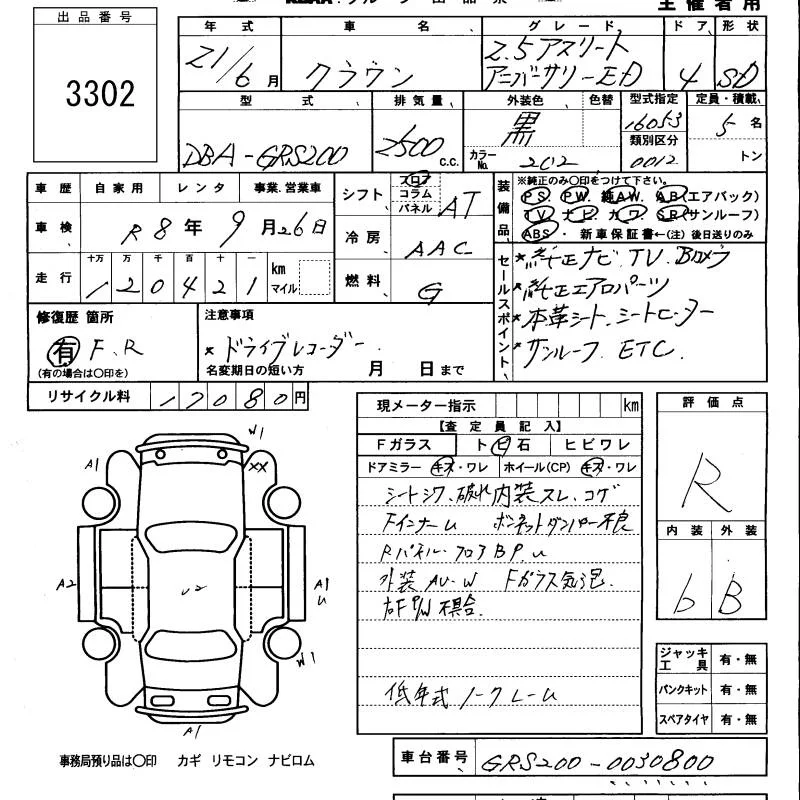 主催者用
出品番号
3302
年式 車名 グレード ドア 形状
21/6月 クラウン 2.5アスリート アニバーサリーED 4 SD
型式 排気量 外装色 色替 型式指定 定員・積載
DBA-GRS200 2500 c.c. 黒 カラーNo. 202 16053 5名
類別区分 0012 トン
車歴 自家用 レンタ 事業.営業車
シフト フロア コラム パネル AT
車検 R8年9月26日
冷房 AAC
走行 十万 万 千 百 十 一 120421 km マイル
燃料 G
装備品 ※純正のみ〇印をつけて下さい。
PS. PW. 純AW. AB(エアバック)
TV. ナビ. カワ. SR(サンルーフ)
ABS ・ 新車保証書←(注)後日送りのみ
セールスポイント
*純正ナビ.TV.Bカメラ
*純正エアロパーツ
*本革シート.シートヒーター
*サンルーフ ETC.
修復歴 箇所
有 F、R
(有の場合は〇印を)
注意事項
*ドライブレコーダー.
名変期日の短い方 月 日まで
リサイクル料 17080円
現メーター指示 km
【査定員記入】
Fガラス ト ビ 石 ヒビワレ
ドアミラー キズ・ワレ ホイール(CP) キズ・ワレ
シートシワ、破れ 内装スレ、コゲ
FインナーU ボンネットダンパー不良
Rパネル.フロアBP.U
外装AU.W Fガラス気泡
右F P/W 不具合.
低年式ノークレーム
評価点
R
内装 外装
6 B
ジャッキ工具 有・無
パンクキット 有・無
スペアタイヤ 有・無
W1
A1 XX
A2 U2 A1
U
W1
A1
事務局預り品は〇印 カギ リモコン ナビロム
車台番号 GRS200-0030800